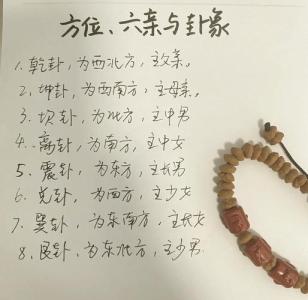 方位、六亲与卦象
1.乾卦，为西北方，主父亲。
2.坤卦，为西南方，主母亲。
3.坎卦，为北方，主中男
4.离卦，为南方，主中女
5、震卦，为东方，主长男
6、兑卦，为西方，主少女
7、巽卦，为东南方，主长女
8、艮卦，为东北方，主少男